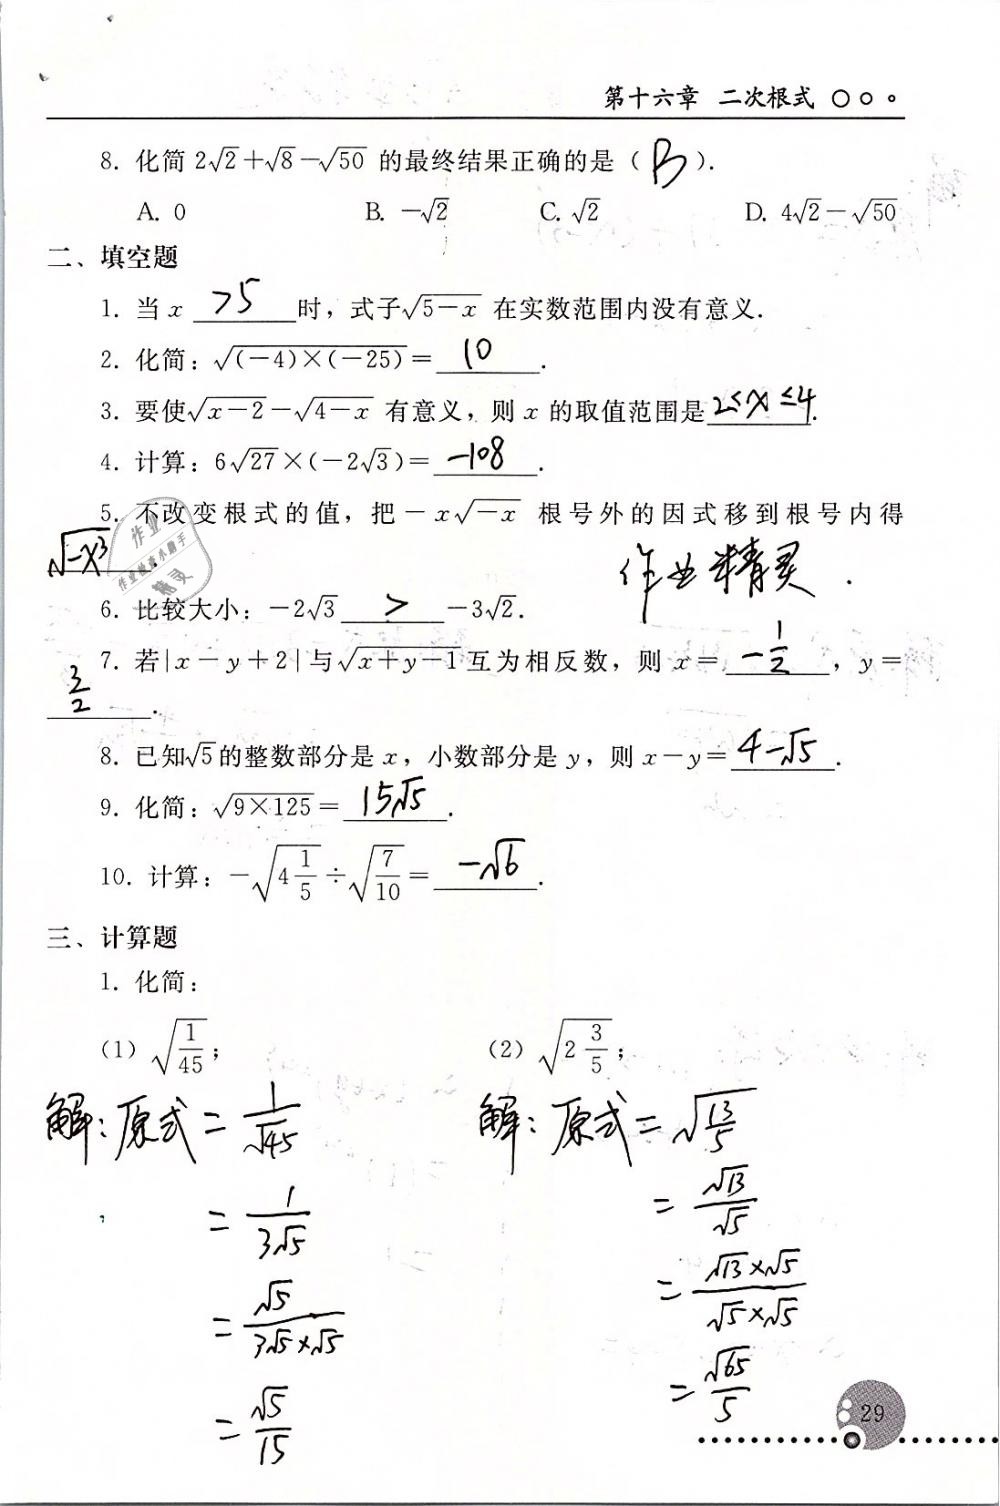 第十六章 二次根式
8. 化简 2√2+√8-√50 的最终结果正确的是（ B ）.
A. 0 B. -√2 C. √2 D. 4√2-√50
二、填空题
1. 当 x >5 时，式子√(5-x) 在实数范围内没有意义.
2. 化简：√((-4)×(-25))= 10 .
3. 要使√(x-2)-√(4-x) 有意义，则 x 的取值范围是 2≤x≤4.
4. 计算：6√27×(-2√3)= -108 .
5. 不改变根式的值，把-x√(-x) 根号外的因式移到根号内得
√(-x³) . 作业精灵.
6. 比较大小：-2√3 > -3√2.
7. 若|x-y+2|与√(x+y-1)互为相反数，则 x= -1/2 ，y=
3/2 .
8. 已知√5的整数部分是 x，小数部分是 y，则 x-y= 4-√5 .
9. 化简：√(9×125)= 15√5 .
10. 计算：-√(4 1/5)÷√(7/10)= -√6 .
三、计算题
1. 化简：
(1) √(1/45)； (2) √(2 3/5)；
解：原式=1/√45 解：原式=√(13/5)
=1/(3√5) =√13/√5
=√5/(3√5×√5) =(√13×√5)/(√5×√5)
=√5/15 =√65/5
29